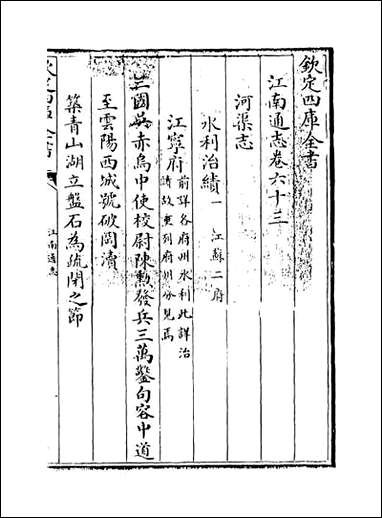 欽定四庫全書
江南通志卷六十三
河渠志
水利治績一 江蘇二府
江寧府
前詳各府州水利此詳治
績故更列府州分見焉
三國吳赤烏中使校尉陳勲發兵三萬鑿句容中道
至雲陽西城號破岡瀆
築青山湖立盤石為疏閉之節
江南通志